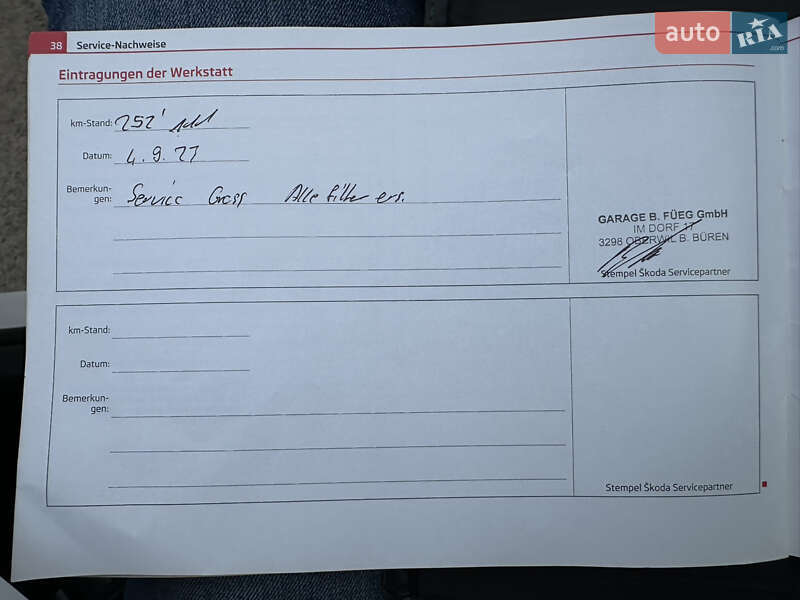 auto RIA .com
38 Service-Nachweise
Eintragungen der Werkstatt
km-Stand: 252'
Datum: 4. 9.
Bemerkun-
gen: Service Gross Alle filter ers.
GARAGE B. FÜEG GmbH
IM DORF 17
3298 OBERWIL B. BÜREN
Stempel Škoda Servicepartner
km-Stand:
Datum:
Bemerkun-
gen:
Stempel Škoda Servicepartner